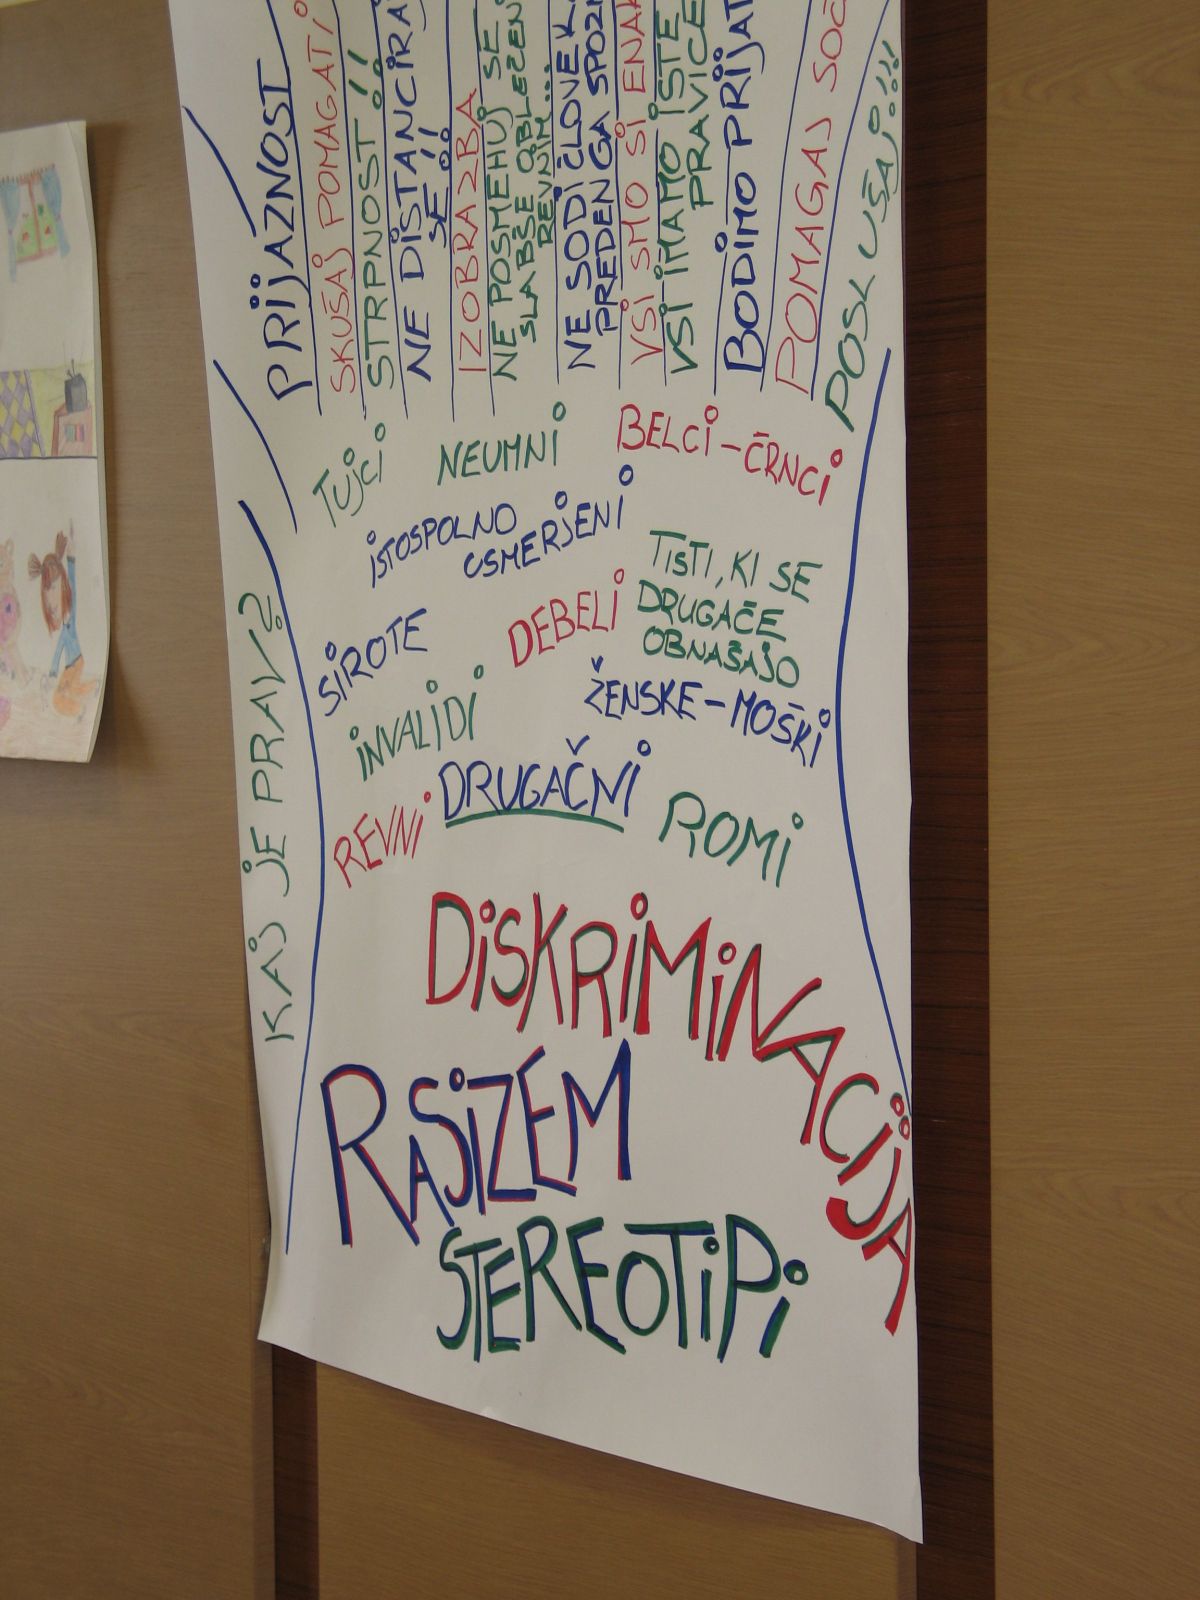 PRIJAZNOST
SKUŠAJ POMAGATI
STRPNOST!!
NE DISTANCIRAJ
SE!!
IZOBRAZBA
NE POSMEHUJ SE
SLABŠE OBLEČEN
REVNIM...
NE SODI ČLOVEKA
PREDEN GA SPOZN
VSI SMO SI ENAK
VSI IMAMO ISTE
PRAVICE
BODIMO PRIJAT
POMAGAJ SOČ
POSLUŠAJ!!!
KAJ JE PRAV?
TUJCI
NEUMNI
BELCI - ČRNCI
ISTOSPOLNO
USMERJENI
TISTI, KI SE
DRUGAČE
OBNAŠAJO
SIROTE
DEBELI
ŽENSKE - MOŠKI
INVALIDI
DRUGAČNI
REVNI
ROMI
DISKRIMINACIJA
RASIZEM
STEREOTIPI